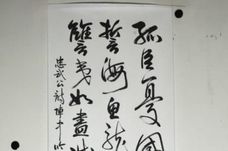 孤臣憂國
誓海魚龍
讐夷如盡滅
忠武公詩陣中吟